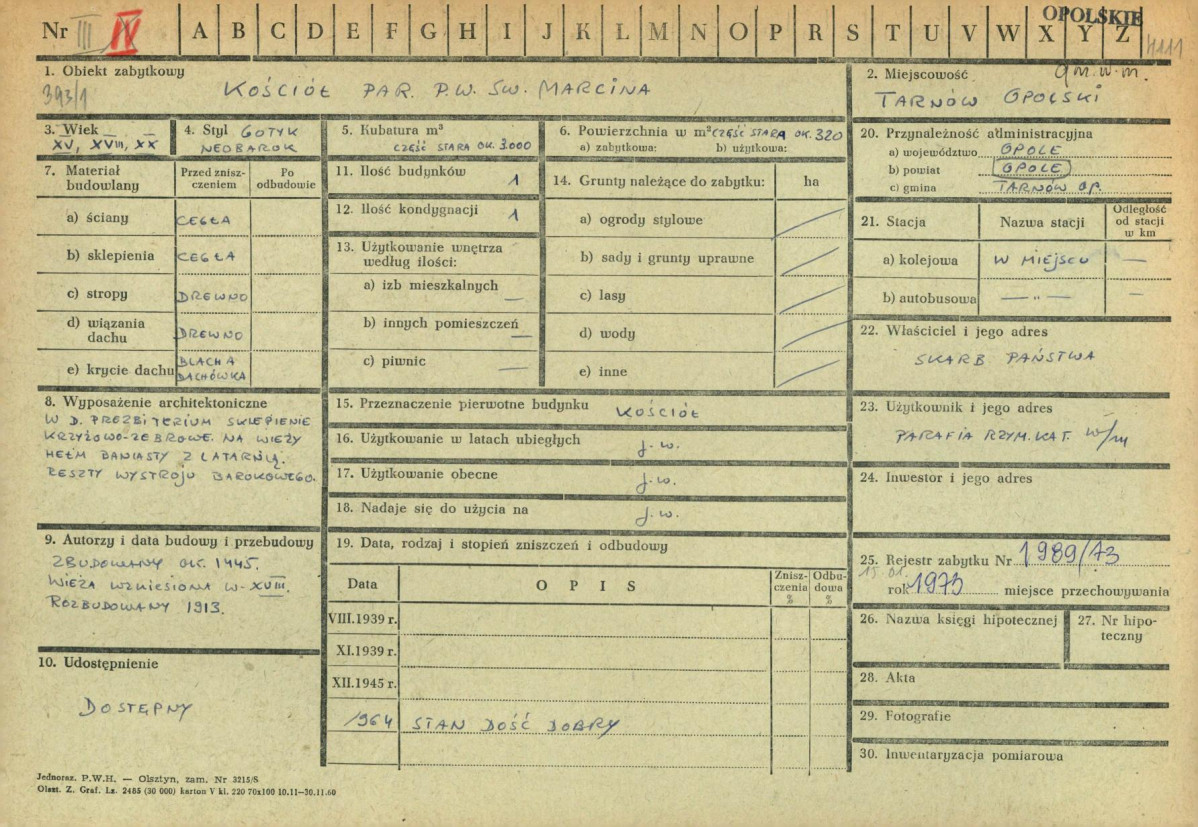 Nr III IV A B C D E F G H I J K Ł M N O P R S T U V W X Y Z
OPOLSKIE
4111
1. Obiekt zabytkowy
393/1
KOŚCIÓŁ PAR. P.W. ŚW. MARCINA
2. Miejscowość
gm.w.m.
TARNÓW OPOLSKI
3. Wiek
XV, XVIII, XX
4. Styl GOTYK
NEOBAROK
5. Kubatura m³
CZĘŚĆ STARA OK. 3.000
6. Powierzchnia w m² CZĘŚĆ STARA OK. 320
a) zabytkowa: b) użytkowa:
7. Materiał budowlany
Przed znisz-
czeniem
Po
odbudowie
a) ściany CEGŁA
b) sklepienia CEGŁA
c) stropy DREWNO
d) wiązania
dachu DREWNO
e) krycie dachu BLACHA
DACHÓWKA
8. Wyposażenie architektoniczne
W D. PREZBITERIUM SKLEPIENIE
KRZYŻOWO-ŻEBROWE. NA WIEŻY
HEŁM BANIASTY Z LATARNIĄ.
RESZTY WYSTROJU BAROKOWEGO.
9. Autorzy i data budowy i przebudowy
ZBUDOWANY OK. 1445.
WIEŻA WZNIESIONA W-XVIII.
ROZBUDOWANY 1913.
10. Udostępnienie
DOSTĘPNY
11. Ilość budynków 1
12. Ilość kondygnacji 1
13. Użytkowanie wnętrza
według ilości:
a) izb mieszkalnych —
b) innych pomieszczeń —
c) piwnic —
14. Grunty należące do zabytku: ha
a) ogrody stylowe
b) sady i grunty uprawne
c) lasy
d) wody
e) inne
15. Przeznaczenie pierwotne budynku KOŚCIÓŁ
16. Użytkowanie w latach ubiegłych j.w.
17. Użytkowanie obecne j.w.
18. Nadaje się do użycia na j.w.
19. Data, rodzaj i stopień zniszczeń i odbudowy
Data OPIS Znisz-
czenia
% Odbu-
dowa
%
VIII.1939 r.
XI.1939 r.
XII.1945 r.
1964 STAN DOŚĆ DOBRY
20. Przynależność administracyjna
a) województwo OPOLE
b) powiat OPOLE
c) gmina TARNÓW OP.
21. Stacja Nazwa stacji Odległość
od stacji
w km
a) kolejowa W MIEJSCU —
b) autobusowa — „ — —
22. Właściciel i jego adres
SKARB PAŃSTWA
23. Użytkownik i jego adres
PARAFIA RZYM. KAT. w/m
24. Inwestor i jego adres
25. Rejestr zabytku Nr 1989/73
15.01.
rok 1973 miejsce przechowywania
26. Nazwa księgi hipotecznej
27. Nr hipo-
teczny
28. Akta
29. Fotografie
30. Inwentaryzacja pomiarowa
Jednoraz. P.W.H. — Olsztyn, zam. Nr 3215/S
Olszt. Z. Graf. Lz. 2485 (30 000) karton V kl. 220 70x100 10.11—30.11.60